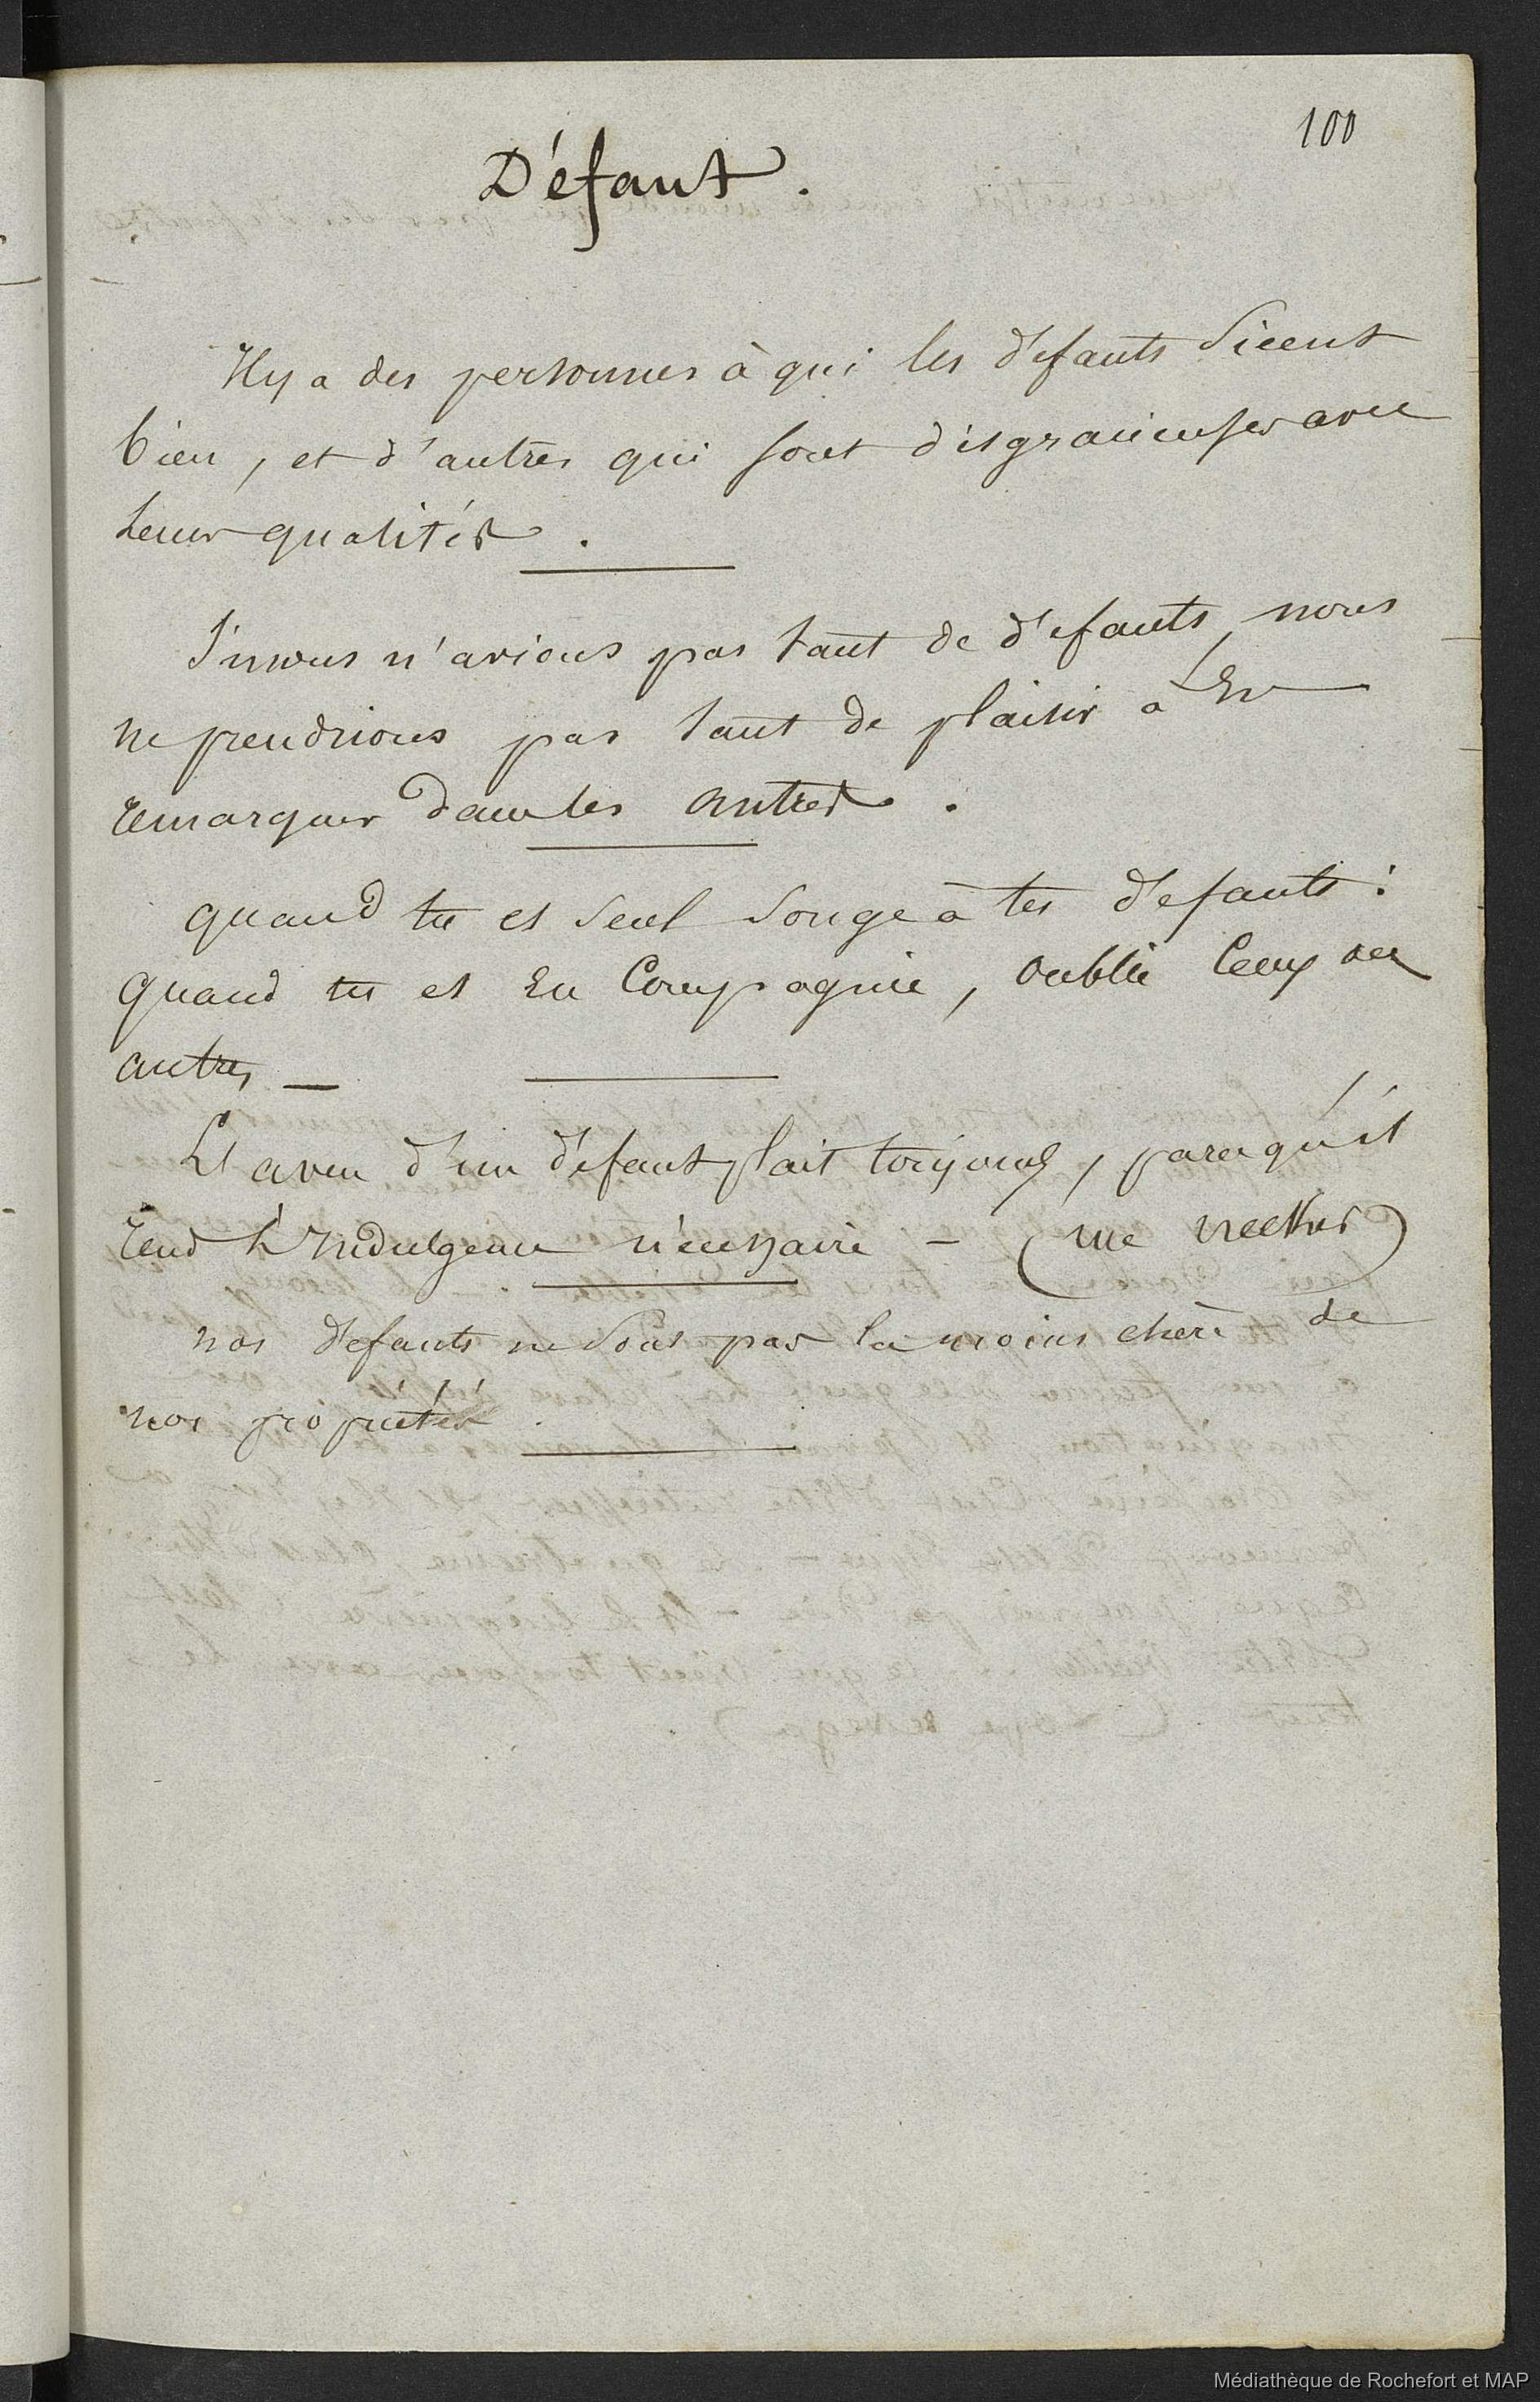 100
Défaut.
Il y a des personnes à qui les défauts siéent
bien, et d'autres qui sont disgracieuses avec
leurs qualités.
Si nous n'avions pas tant de défauts, nous
ne prendrions pas tant de plaisir à en
remarquer dans les autres.
quand tu es seul songe à tes défauts :
quand tu es en Compagnie, oublie ceux des
autres —
L'aveu d'un défaut plait toujours, parcequ'il
rend l'Indulgence nécessaire — (Me Necker)
nos défauts ne sont pas la moins chère de
nos propriétés.
Médiathèque de Rochefort et MAP